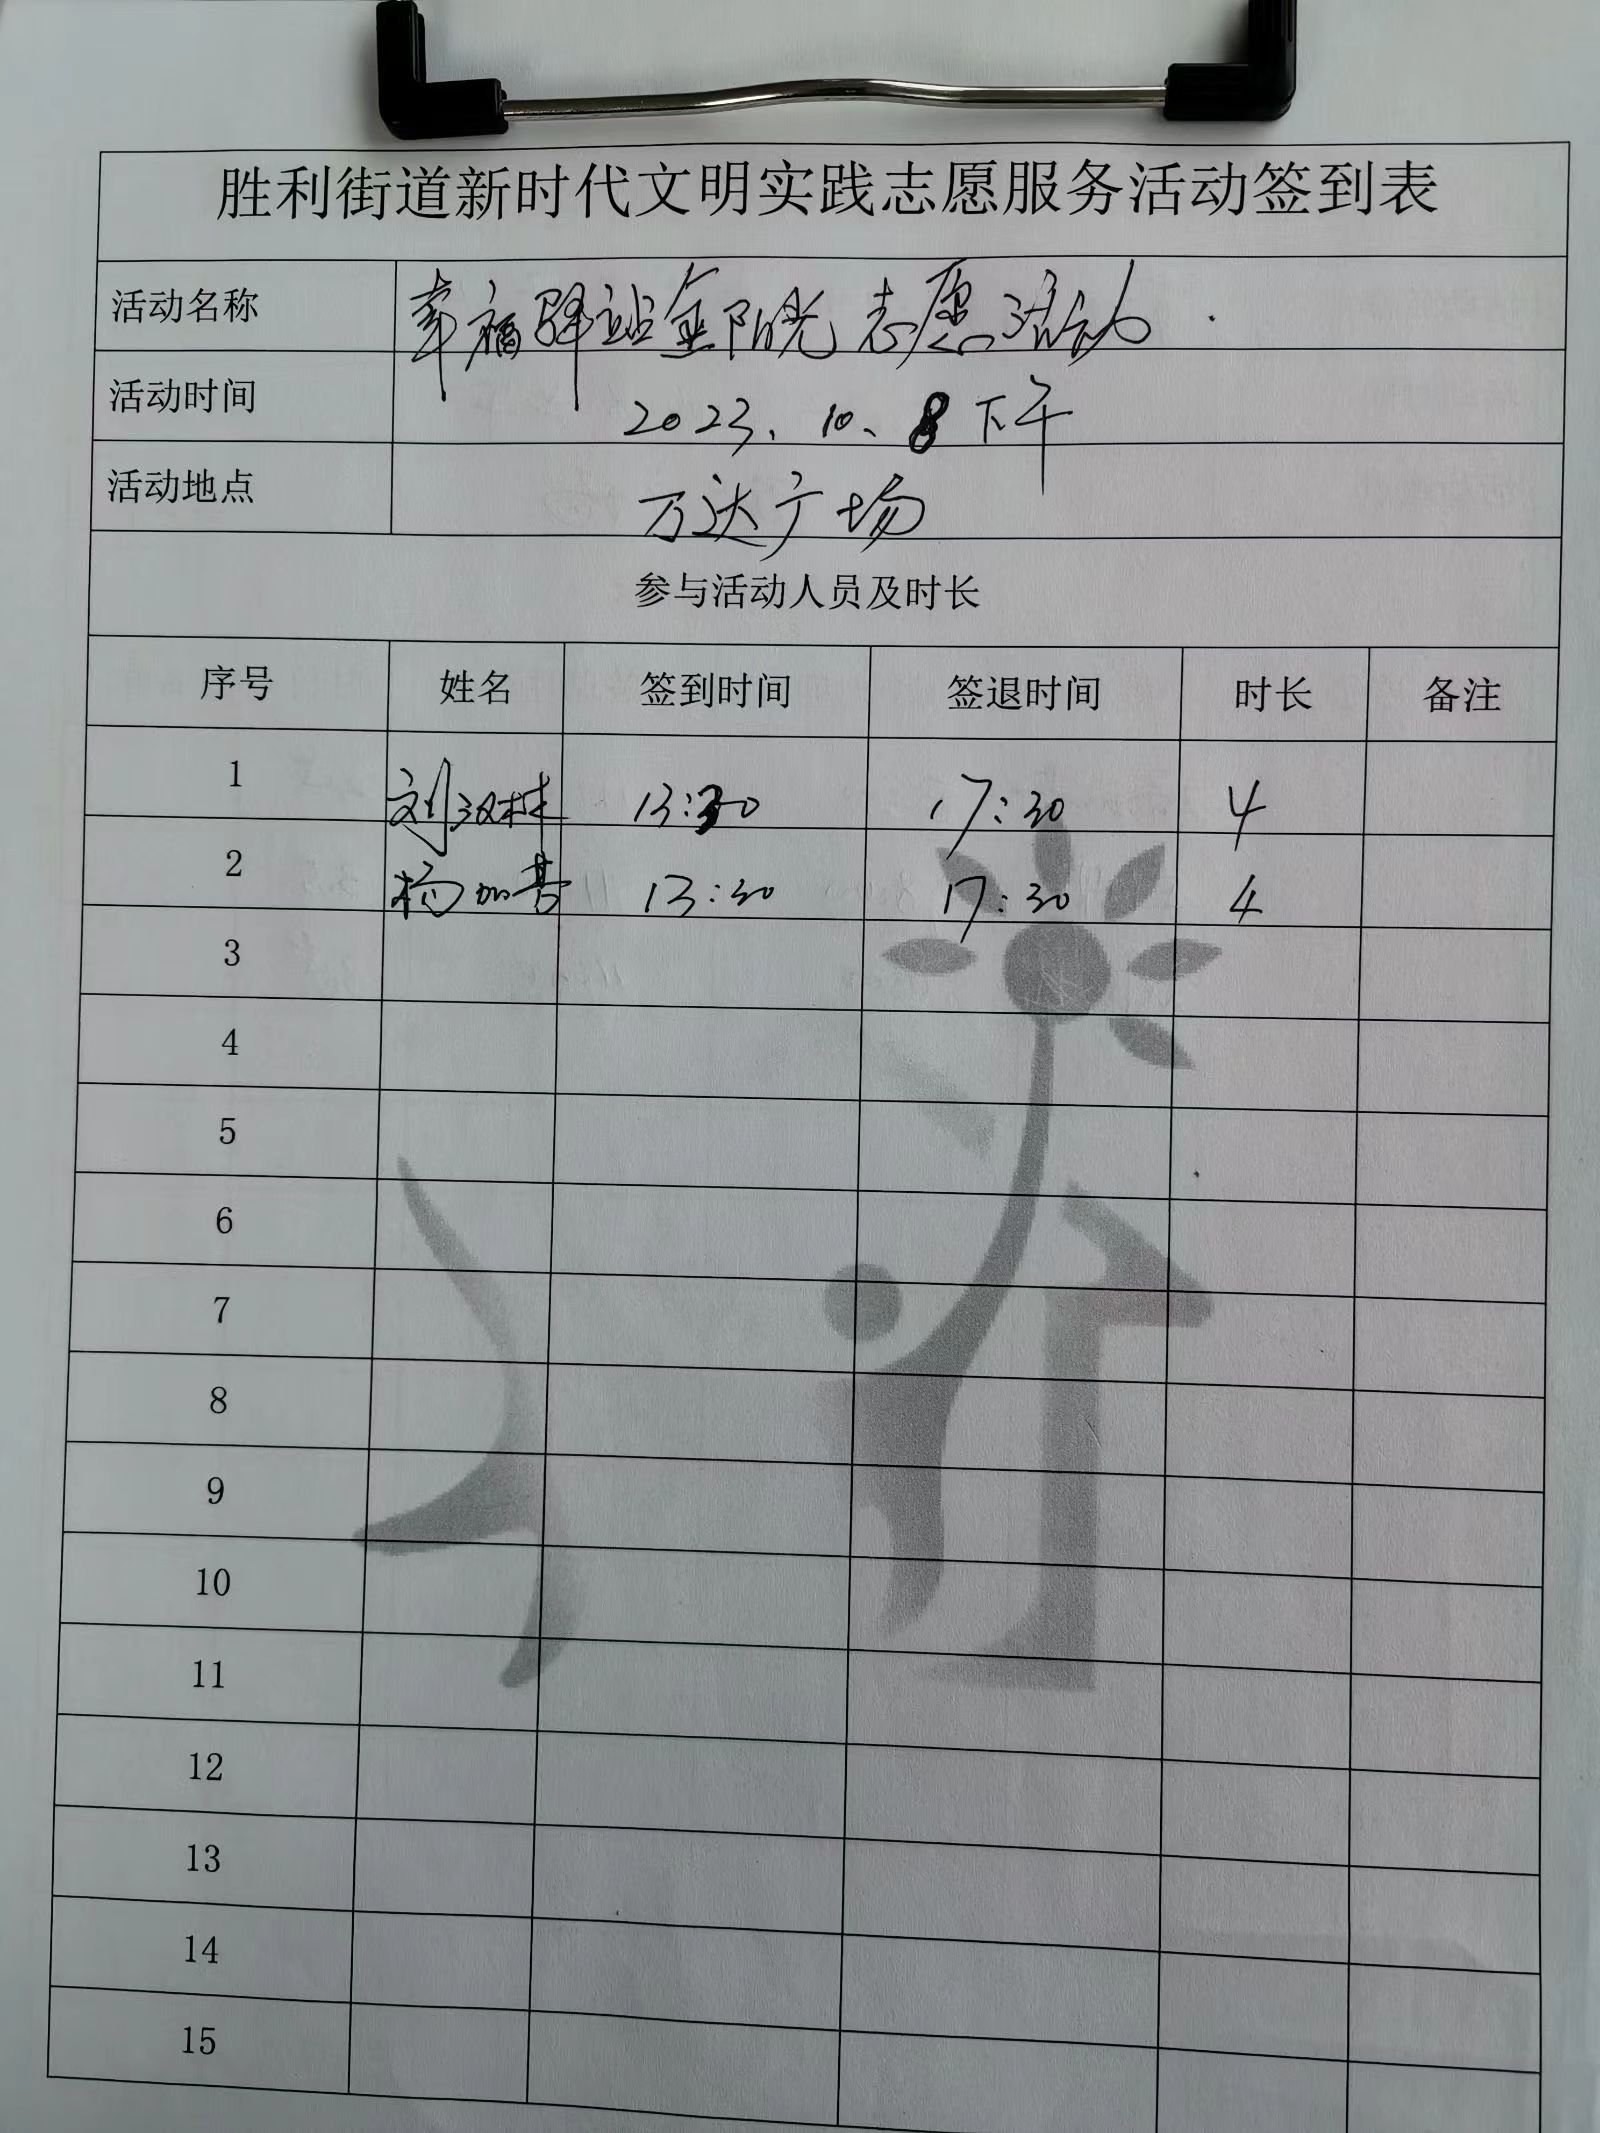 胜利街道新时代文明实践志愿服务活动签到表
活动名称 幸福驿站金阳光志愿活动
活动时间 2023、10、8下午
活动地点 万达广场
参与活动人员及时长
序号 姓名 签到时间 签退时间 时长 备注
1 刘汉林 13:30 17:30 4
2 杨 13:30 17:30 4
3
4
5
6
7
8
9
10
11
12
13
14
15